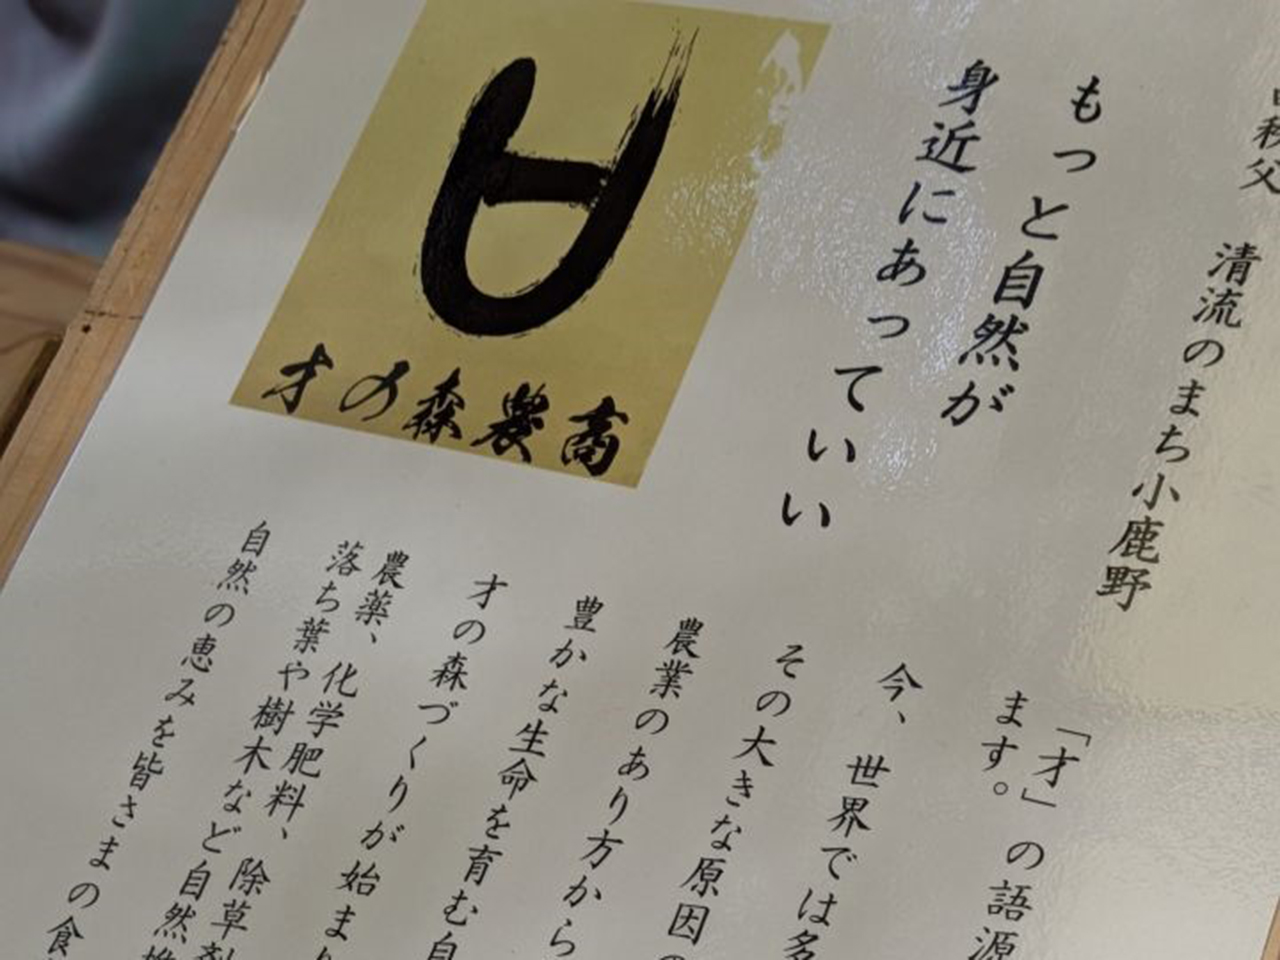 秩父 清流のまち小鹿野
もっと自然が
身近にあっていい
才の森農商
「才」の語源
ます。
今、世界では多
その大きな原因の
農業のあり方から
豊かな生命を育む自
才の森づくりが始まり
農薬、化学肥料、除草剤
落ち葉や樹木など自然堆
自然の恵みを皆さまの食